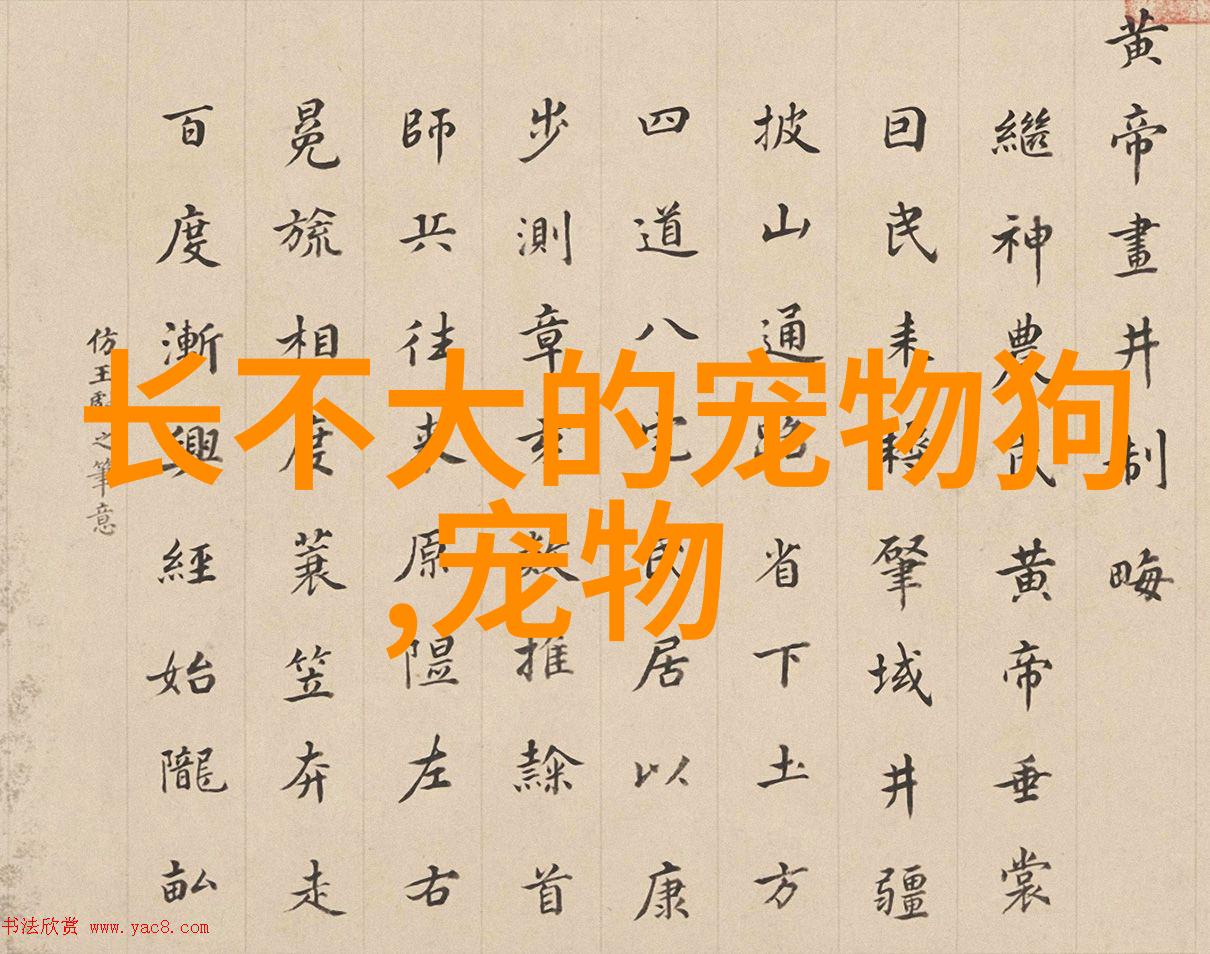 黄帝畫井制畮
繼神農氏黄帝垂裳
囙民耒耨肇域井疆
披山通路省下土方
四道八宅民居以康
步測章亥數推隸首
師兵往来原隰左右
冕旒相度蓑笠奔走
百度漸興經始隴畝
仿王獻之筆意
长不大的宠物狗
,宠物
书法欣赏 www.yac8.com